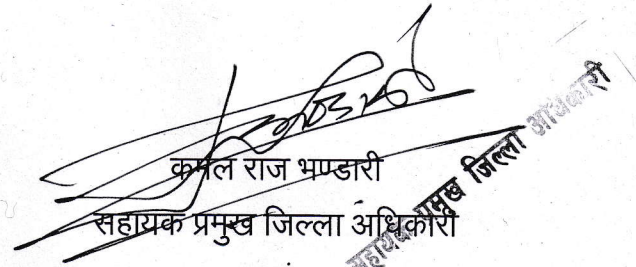 कमल राज भण्डारी
सहायक प्रमुख जिल्ला अधिकारी
सहायक प्रमुख जिल्ला अधिकारी